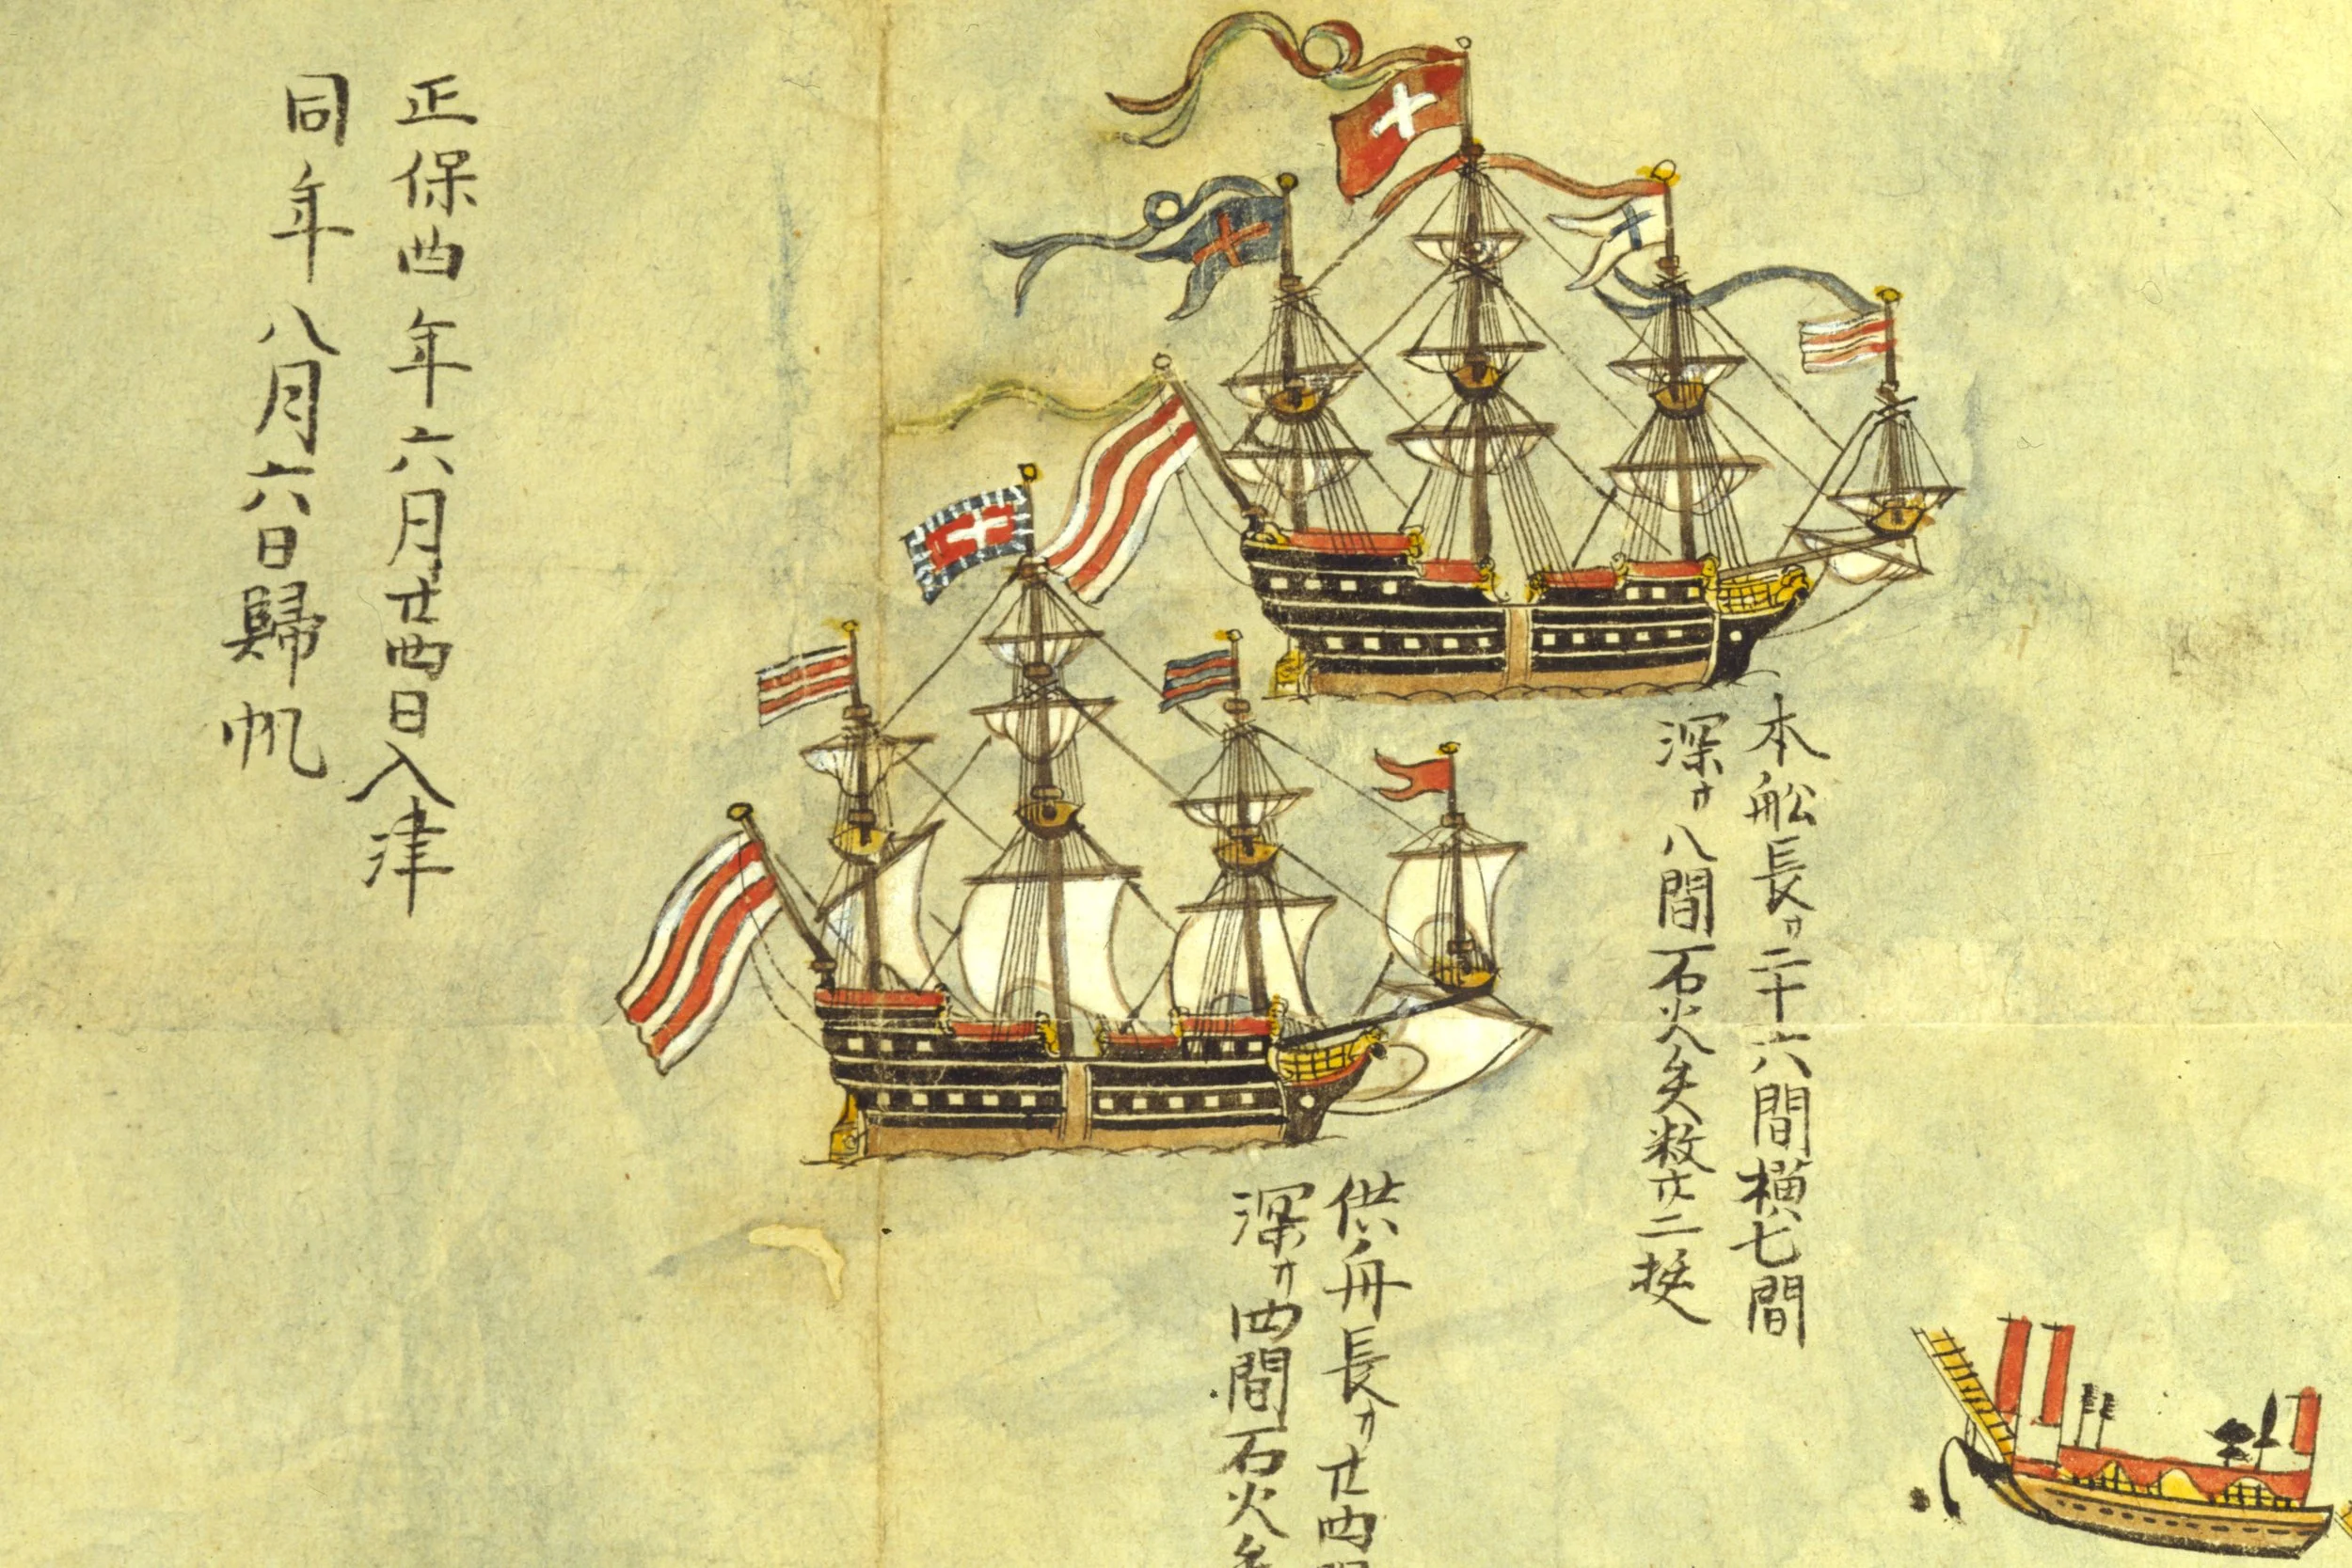 本舩長サ二十六間横七間
深サ八間石火矢数廿二挺
供舟長サ廿四
深サ四間石火
正保四年六月廿四日入津
同年八月六日歸帆